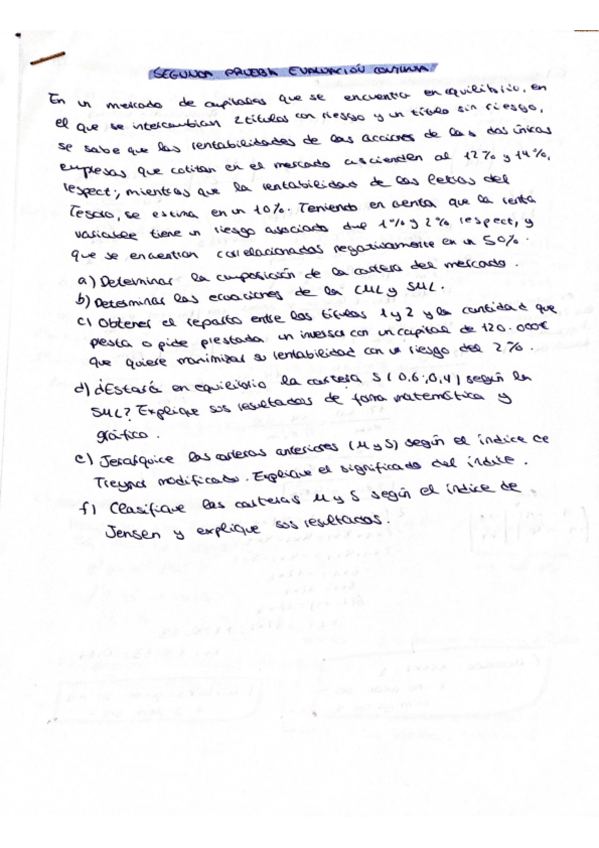 SEGUNDA PRUEBA EVALUACIÓN CONTINUA
En un mercado de capitales que se encuentra en equilibrio, en
el que se intercambian 2 títulos con riesgo y un título sin riesgo,
se sabe que las rentabilidades de las acciones de las dos únicas
empresas que cotizan en el mercado ascienden al 12% y 14%,
respect;, mientras que la rentabilidad de las letras del
Tesoro, se estima en un 10%. Teniendo en cuenta que la renta
variable tiene un riesgo asociado del 1% y 2% respect, y
que se encuentran correlacionados negativamente en un 50%.
a) Determinar la composición de la cartera del mercado.
b) Determinar las ecuaciones de la CML y SML.
c) Obtener el reparto entre los títulos 1 y 2 y la cantidad que
presta o pide prestada un inversor con un capital de 120.000€
que quiere maximizar su rentabilidad con un riesgo del 2%.
d) ¿Estaría en equilibrio la cartera S (0,6;0,4) según la
SML? Explique sus resultados de forma matemática y
gráfica.
e) Jerarquice las carteras anteriores (M y S) según el índice de
Treynor modificado. Explique el significado del índice.
f) Clasifique las carteras M y S según el índice de
Jensen y explique sus resultados.